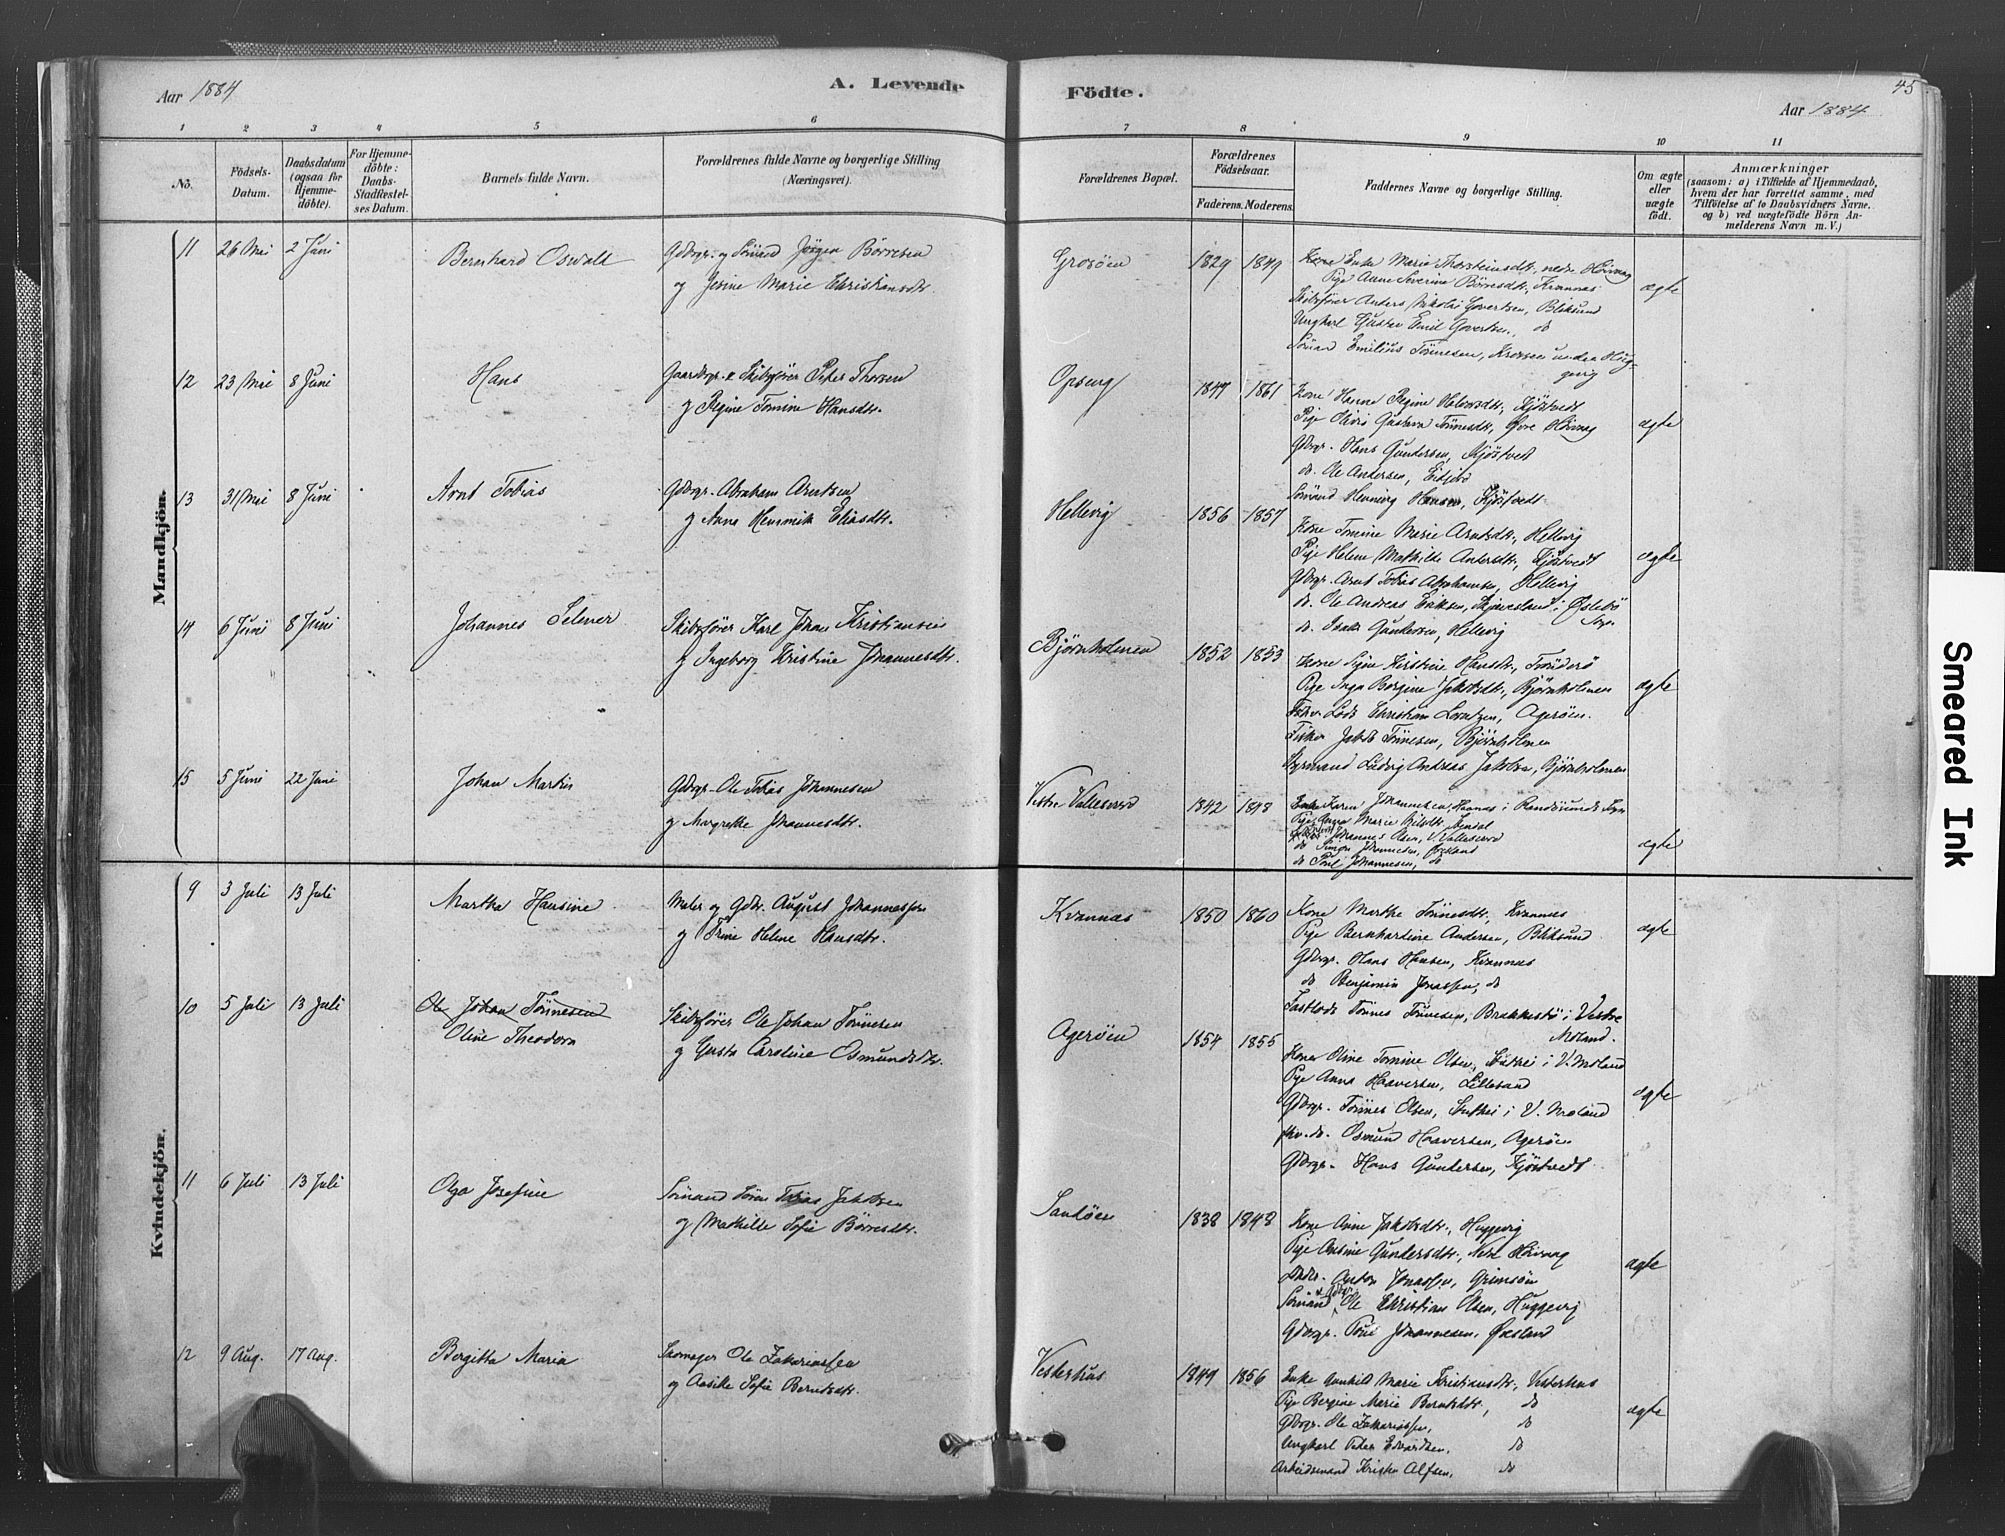 Aar 1884
A. Levende
Födte.
45
Aar 1884
1 2 3 4 5 6 7 8 9 10 11
No.
Födsels-
Datum.
Daabsdatum
(ogsaa for
Hjemme-
döbte).
For Hjemme-
döbte:
Daabs-
Stadfæstel-
ses Datum.
Barnets fulde Navn.
Forældrenes fulde Navne og borgerlige Stilling
(Næringsvei).
Forældrenes Bopæl.
Forældrenes
Födselsaar.
Faderens. Moderens.
Faddernes Navne og borgerlige Stilling.
Om ægte
eller
uægte
födt.
Anmærkninger
(saasom: a) i Tilfælde af Hjemmedaab,
hvem der har forrettet samme, med
Tilföielse af to Daabsvidners Navne.
og b) ved uægtefödte Börn An-
melderens Navn m. V.)
Mandkjön.
11 26 Mai 2 Juni Bernhard Oswald Gdbrgr. og Sömand Jörgen Börresen
og Jesine Marie Christiansdtr.
Grosöen 1829 1849
Marie Thorsteinsdtr., nedre Hövaag
Pige Anne Severine Börnesdtr., Kvannes
Skibsförer Anders Nikolai Govertsen, Bliksund
Ungkarl Gustav Emil Govertsen, do
Sömand Emilius Tönnesen,
ægte
12 23 Mai 8 Juni Hans Gaardbgr. & Skibsförer Peter Thorsen
og Regine Tomine Hansdtr.
Opseng 1847 1861
Kone Hanne Regine Kjöstvedt
Pige Olivia Gustava Tönnesdtr., Övre Hövaag
Gdbrgr. Hans Gundersen, Kjöstvedt
do. Ole Andersen,
Sömand Henning Hansen, Kjöstvedt
ægte
13 31 Mai 8 Juni Arnt Tobias Gdbrgr. Abraham Arntsen
og Anne Henrikke Eliasdtr.
Hellevig 1856 1857
Kone Tomine Marie Arntsdtr., Hellvig
Pige Helene Mathilde Andersdtr., Kjöstvedt
Gdbrgr. Arnt Tobias Abrahamsen, Hellevig
do. Ole Andreas Eriksen, Skjæveland i Østebö
Sogn
do. Isak Gundersen, Hellevig
ægte
14 6 Juni 8 Juni Johannes Selmer Skibsförer Karl Johan Kristiansen
og Ingeborg Kristine Johannesdtr.
Björnholmen 1852 1853
Kone Signe Kirstine Hansdtr.,
Pige Inga Bergine Jakobsdtr., Björnholmen
Lods Christian Lorentzen, Agerøen.
Fisker Jakob Tönnesen, Björnholmen
Styrmand Ludvig Andreas Jakobsen, Björnholmen
ægte
15 5 Juni 22 Juni Johan Martin Gdbrgr. Ole Tobias Johannesen
og Margrethe Johannesdtr.
Vestre Vallesverd 1842 1848
Enke Karen Johannesen, Haanes i Randøsunds Sogn
Pige Anna Marie Nilsdtr.
Johannes Olsen, V. Vallesverd
do Simon Johannesen, Øxeland
do Poul Johannesen, do
ægte
Kvindekjön.
9 3 Juli 13 Juli Martha Hansine Maler og Gdbr. August Johannessen
og Trine Helene Hansdtr.
Kvannes 1850 1860
Kone Marthe Tönnesdtr., Kvannes
Pige Bernhardine Andersen, Bliksund
Gdbrgr. Hans Hansen, Kvannes
do Benjamin Jonassen, do
Fastlods Tönnes Tönnesen, Brækkestö i Vestre
Moland.
ægte
10 5 Juli 13 Juli Ole Johan Tönnesen
Oline Theodora
Skibsförer Ole Johan Tönnesen
og Gusta Caroline Osmundsdtr.
Agerøen 1854 1855
Kone Oline Tomine Olsen, i V. Moland
Pige Anna Haaversen, Lillesand
Gdbrgr. Tönnes Olsen, i V. Moland
fhv. do. Osmund Haaversen, Agerøen
Gdbrgr. Hans Gundersen, Kjöstvedt
ægte
11 6 Juli 13 Juli Olga Josefine Sömand Sören Tobias Jakobsen
og Mathilde Sofie Börresdtr.
Sandöen 1838 1848
Kone Anne Jakobsdtr., Huggevig
Pige Andine Gundersdtr., Nedre Hövaag
Anton Jonassen, Grimsöen
Sömand & Gdbr. Ole Christian Olsen, Huggevig
Gdbrgr. Poul Johannesen, Øxeland
ægte
12 9 Aug. 17 Aug. Bergitta Maria Skomager Ole Zakariassen
og Aasille Sofie Berntsdtr.
Vesterhus 1849 1856
Enke Gunhild Marie Kristiansdtr., Vesterhus
Pige Bergine Marie Berntsdtr., do
Gdbrgr. Ole Zakariassen, do
Ungkarl Peter Edvardsen. do
Arbeidsmand Kristen Alfsen, do
ægte
Smeared Ink